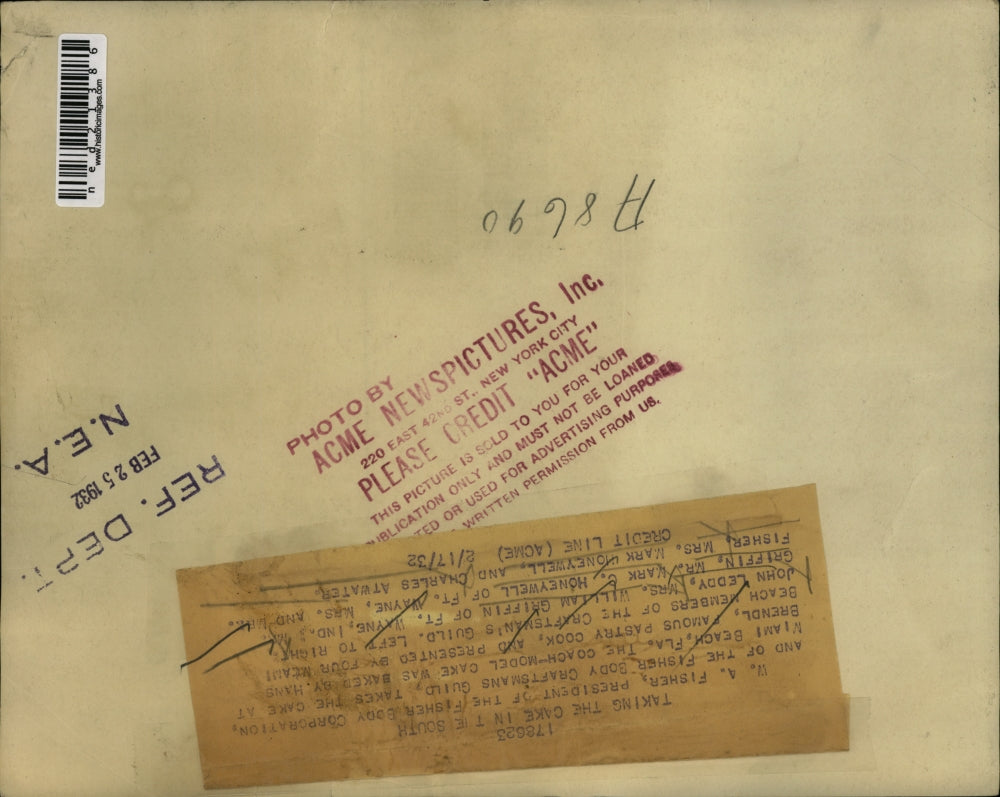 ned21386
www.historicimages.com
A 8690
PHOTO BY
ACME NEWSPICTURES, Inc.
220 EAST 42ND ST., NEW YORK CITY
PLEASE CREDIT "ACME"
THIS PICTURE IS SOLD TO YOU FOR YOUR
PUBLICATION ONLY AND MUST NOT BE LOANED
OR USED FOR ADVERTISING PURPOSES
WRITTEN PERMISSION FROM US.
REF. DEPT.
FEB 25 1932
N.E.A.
178623
TAKING THE CAKE IN THE SOUTH
W. A. FISHER, PRESIDENT OF THE FISHER BODY CORPORATION,
AND OF THE FISHER BODY CRAFTSMANS GUILD, TAKES THE CAKE AT
MIAMI BEACH, FLA. THE COACH-MODEL CAKE WAS BAKED BY HANS
BRENDL, FAMOUS PASTRY COOK, AND PRESENTED BY FOUR MIAMI
BEACH MEMBERS OF THE CRAFTSMAN'S GUILD. LEFT TO RIGHT,
JOHN LEDDY, MRS. WILLIAM GRIFFIN OF FT. WAYNE, IND., WM.
GRIFFIN, MR. MARK C. HONEYWELL OF FT. WAYNE, MRS. AND MR.
FISHER, MRS. MARK HONEYWELL, AND CHARLES ATWATER
CREDIT LINE (ACME) 2/17/32